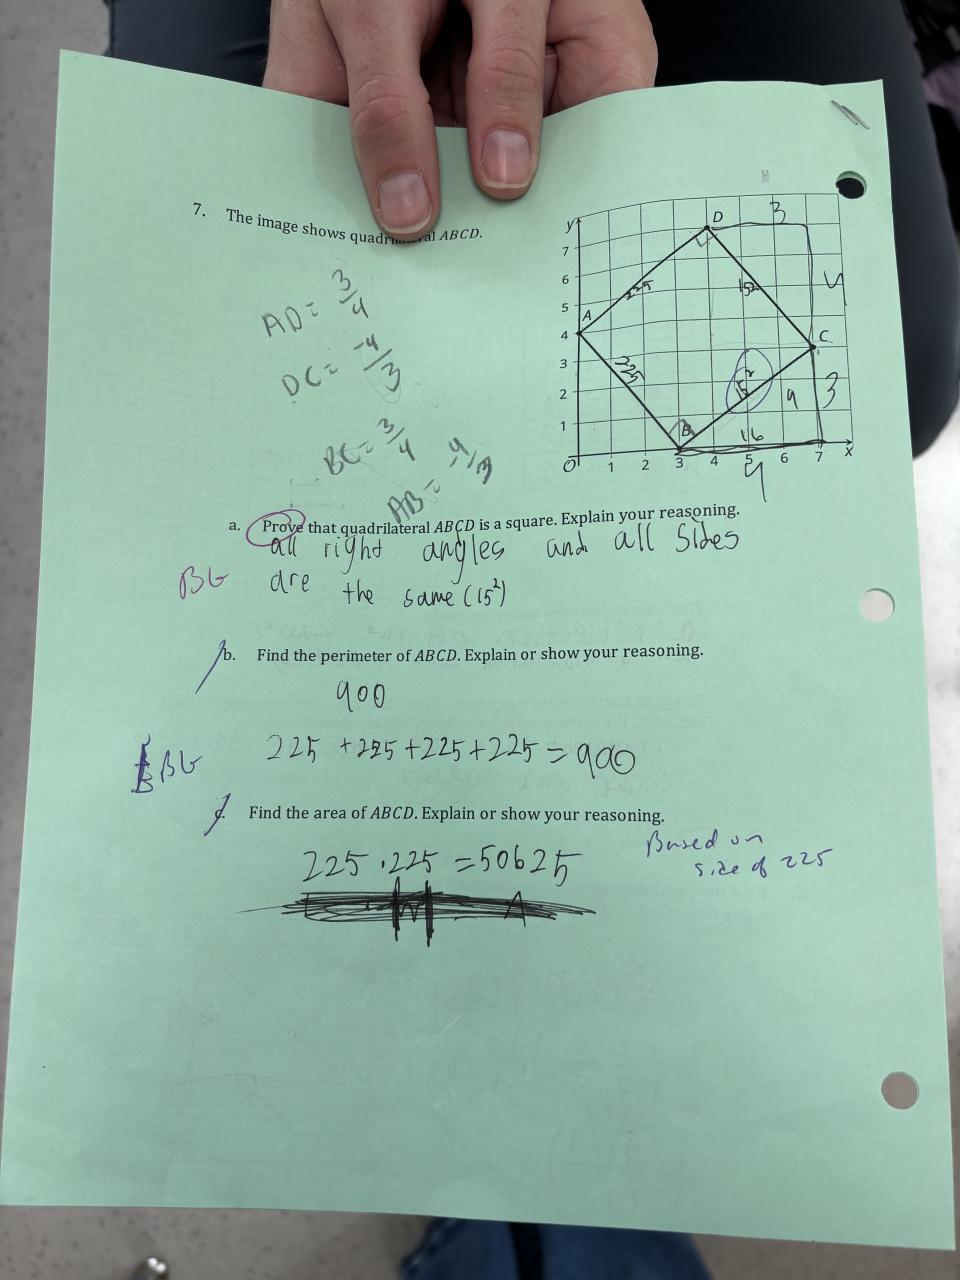 7. The image shows quadrilateral ABCD.
AD = 3/4
DC = -4/3
BC = 3/4
AB = -4/3
y
7
6
5
4
3
2
1
O
1 2 3 4 5 6 7 x
A
B
C
D
3
4
225
15²
225
15²
9
3
16
4
a. Prove that quadrilateral ABCD is a square. Explain your reasoning.
all right angles and all sides
are the same (15²)
b. Find the perimeter of ABCD. Explain or show your reasoning.
900
225 + 225 + 225 + 225 = 900
c. Find the area of ABCD. Explain or show your reasoning.
225 · 225 = 50625
Based on
size of 225